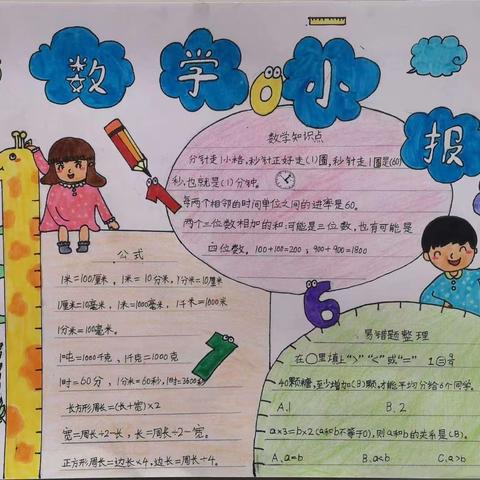 数学小报
数学知识点
分针走1小格,秒针正好走(1)圈,秒针走1圈是(60)
秒,也就是(1)分钟。
每两个相邻的时间单位之间的进率是60。
两个三位数相加的和:可能是三位数,也有可能是
四位数。100+100=200;900+900=1800
公式
1米=100厘米,1米=10分米,1分米=10厘米
1厘米=10毫米,1米=1000毫米,1千米=1000米
1分米=100毫米。
1吨=1000千克,1千克=1000克
1时=60分,1分米=60秒,1时=3600秒
长方形周长=(长+宽)×2
宽=周长÷2-长,长=周长÷2-宽。
正方形周长=边长×4,边长=周长÷4。
0
1
6
7
易错题整理
在○里填上“>”“<”或“=”
40颗糖,至少增加(B)颗,才能平均分给6个同学。
A.1 B.2
a×3=b×2(a和b不等于0),则a和b的关系是(B)。
A、a=b B.a<b C.a>b